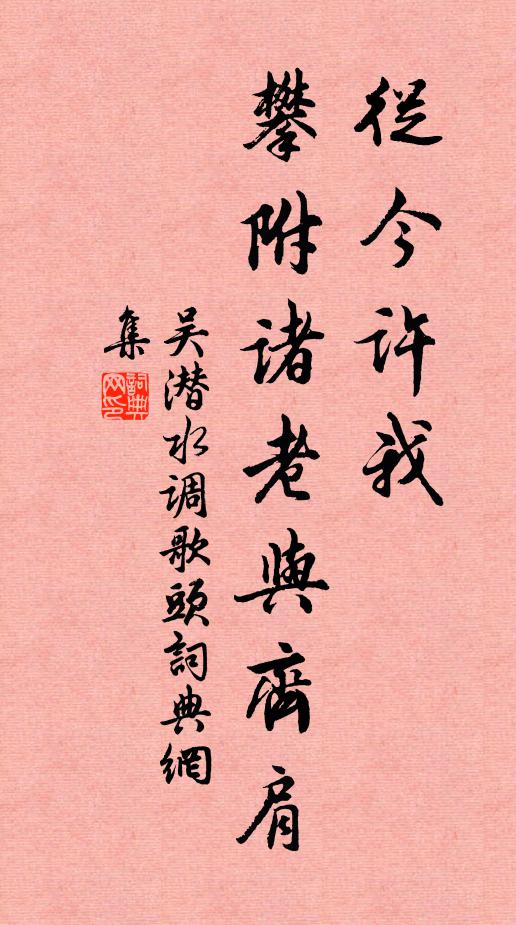 從今許我
攀附诸老與齊肩
吴潜水调歌頭詞典網
集
詞典网印